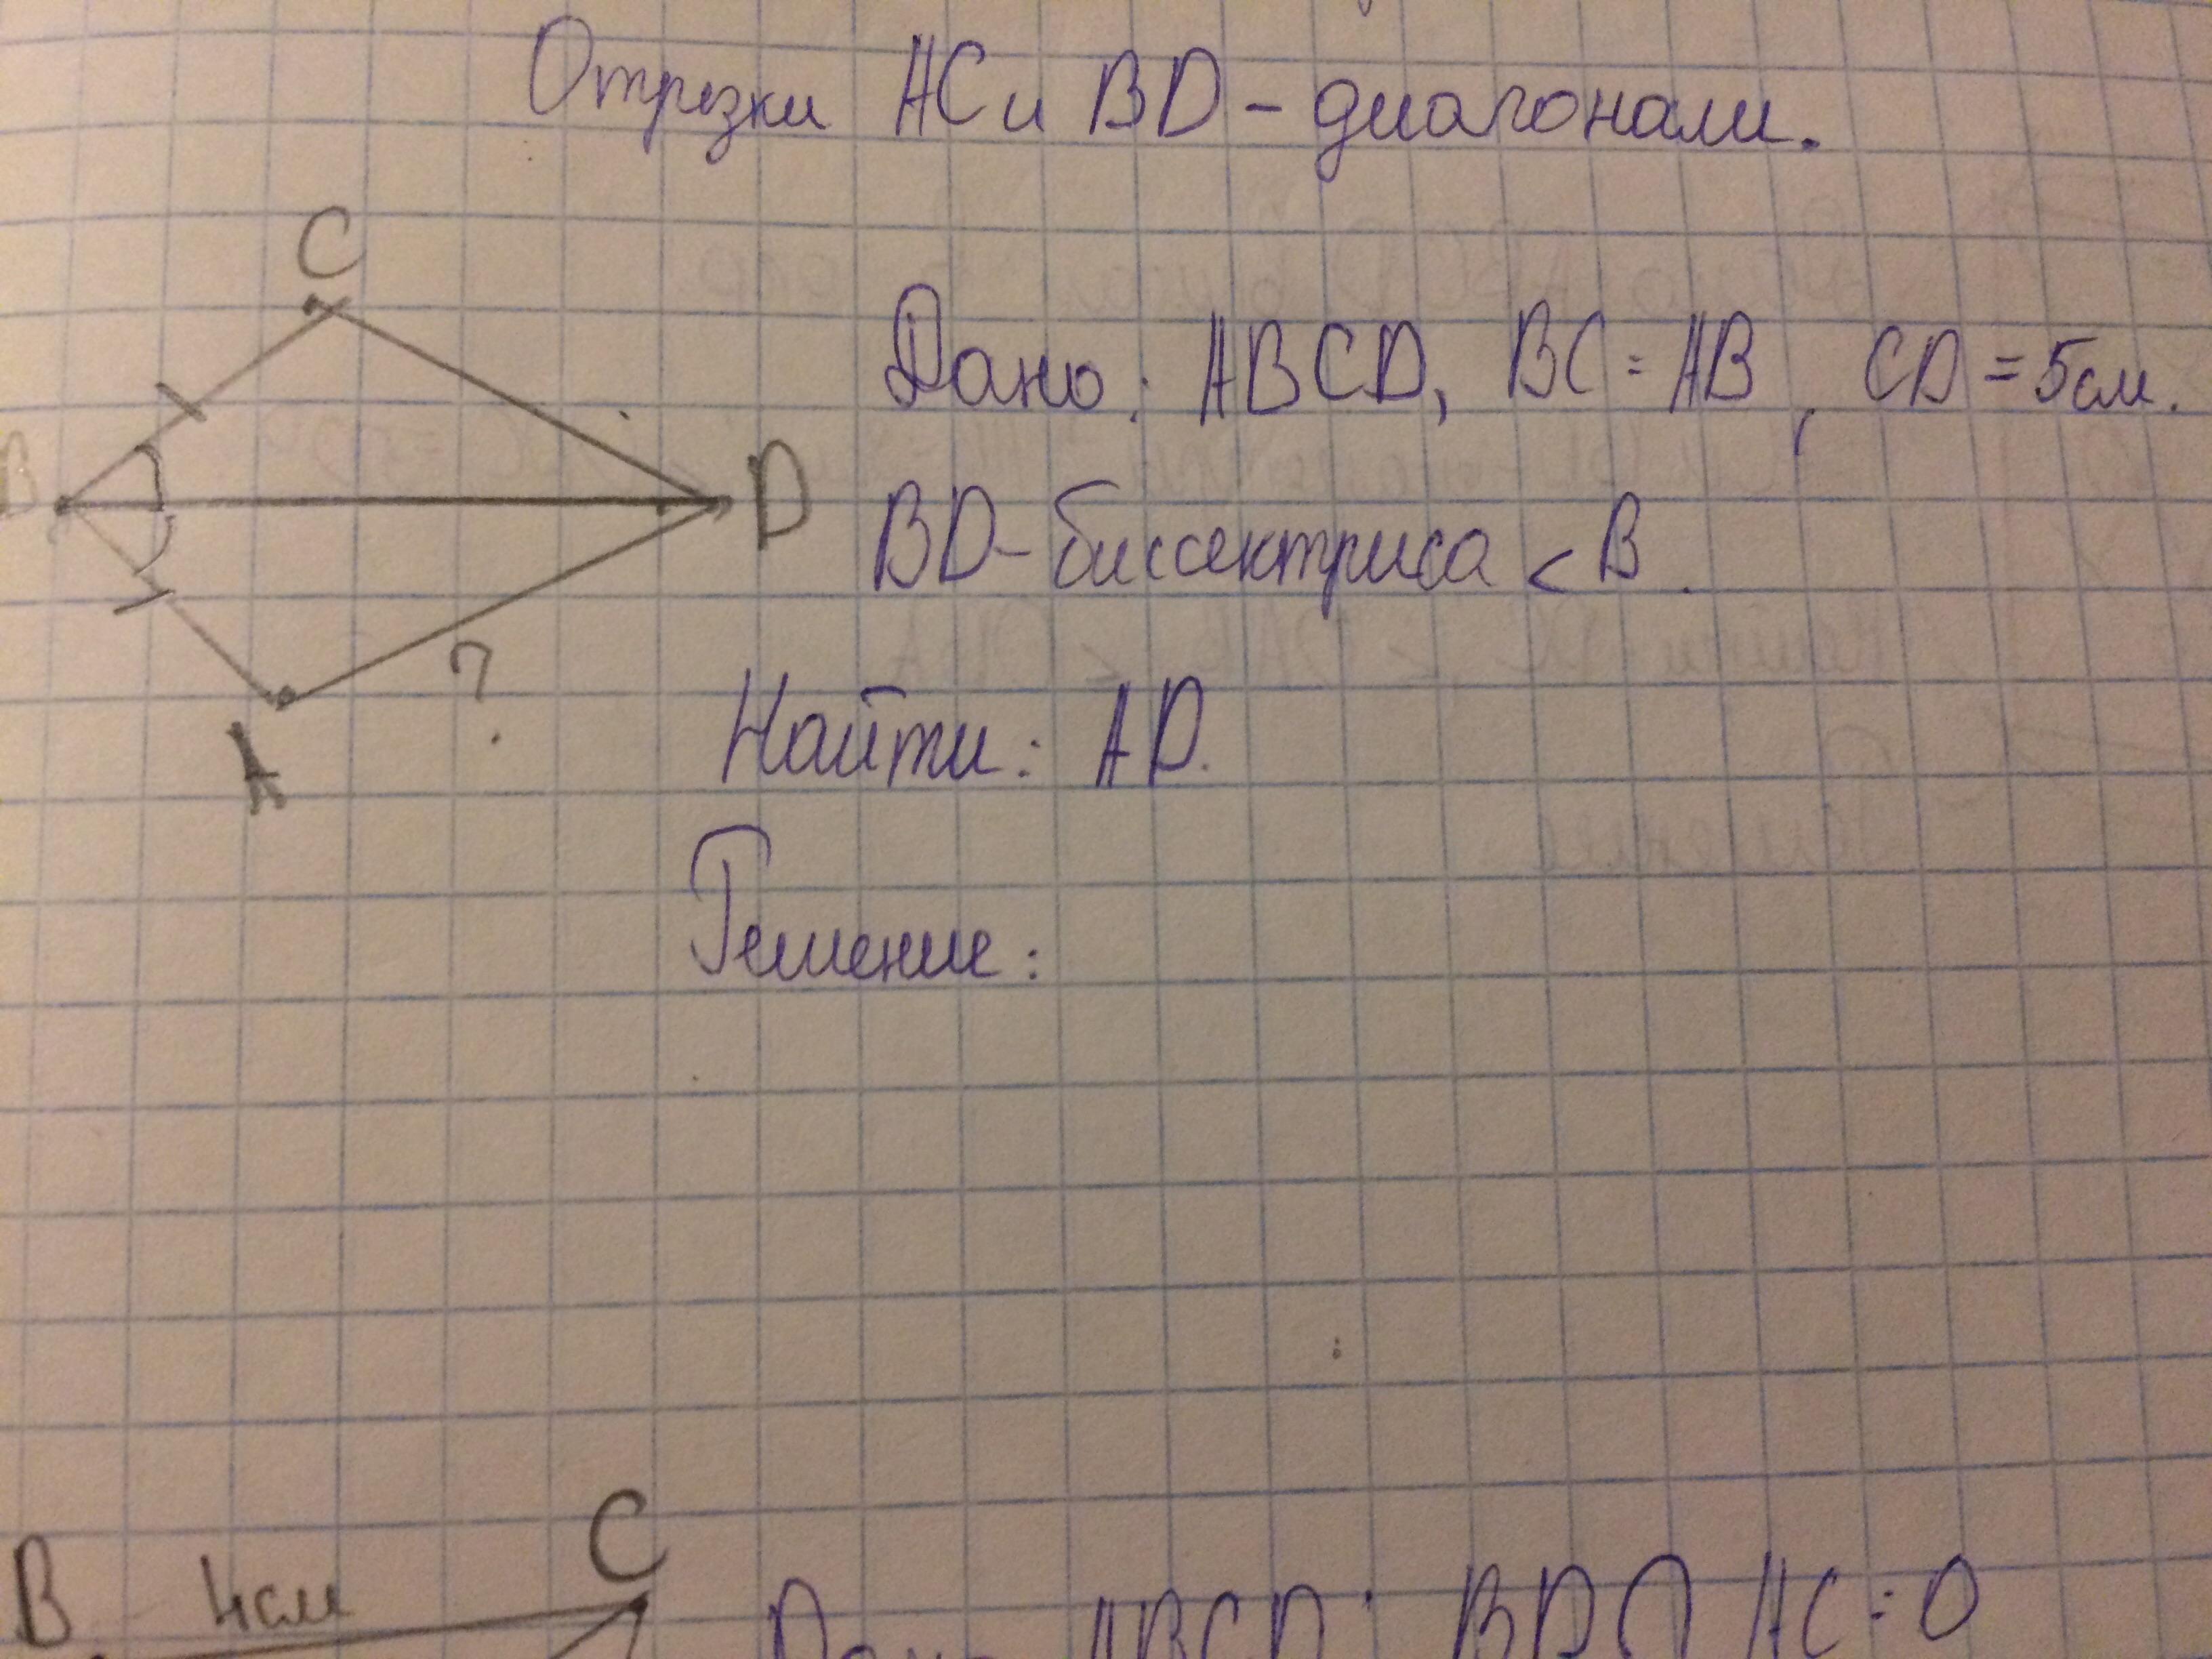 Отрезки AC и BD - диагонали.
C
Дано: ABCD, BC = AB, CD = 5см.
B
D
BD - биссектриса < B.
?
Найти: AD.
A
Решение:
C
B 4см
Дано ABCD; BD ∩ AC = O